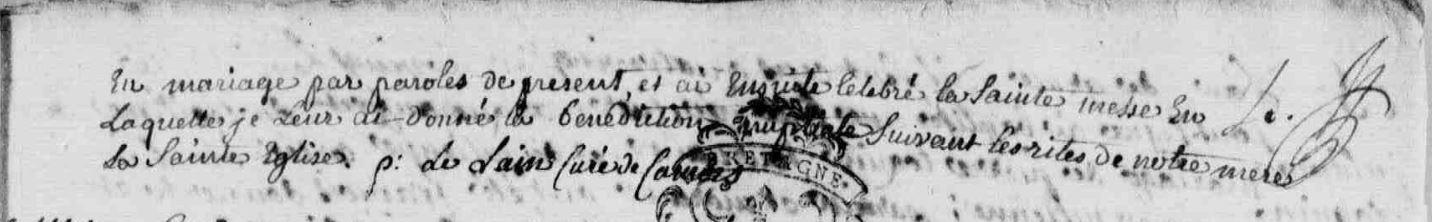 En mariage par paroles de present, et ai Ensuite Celebré la Sainte messe En
Laquelle je Leur ai donné la benediction nuptiale Suivant les rites de notre mere
La Sainte Eglise. p: Le Lain Curé de
BRETAGNE.